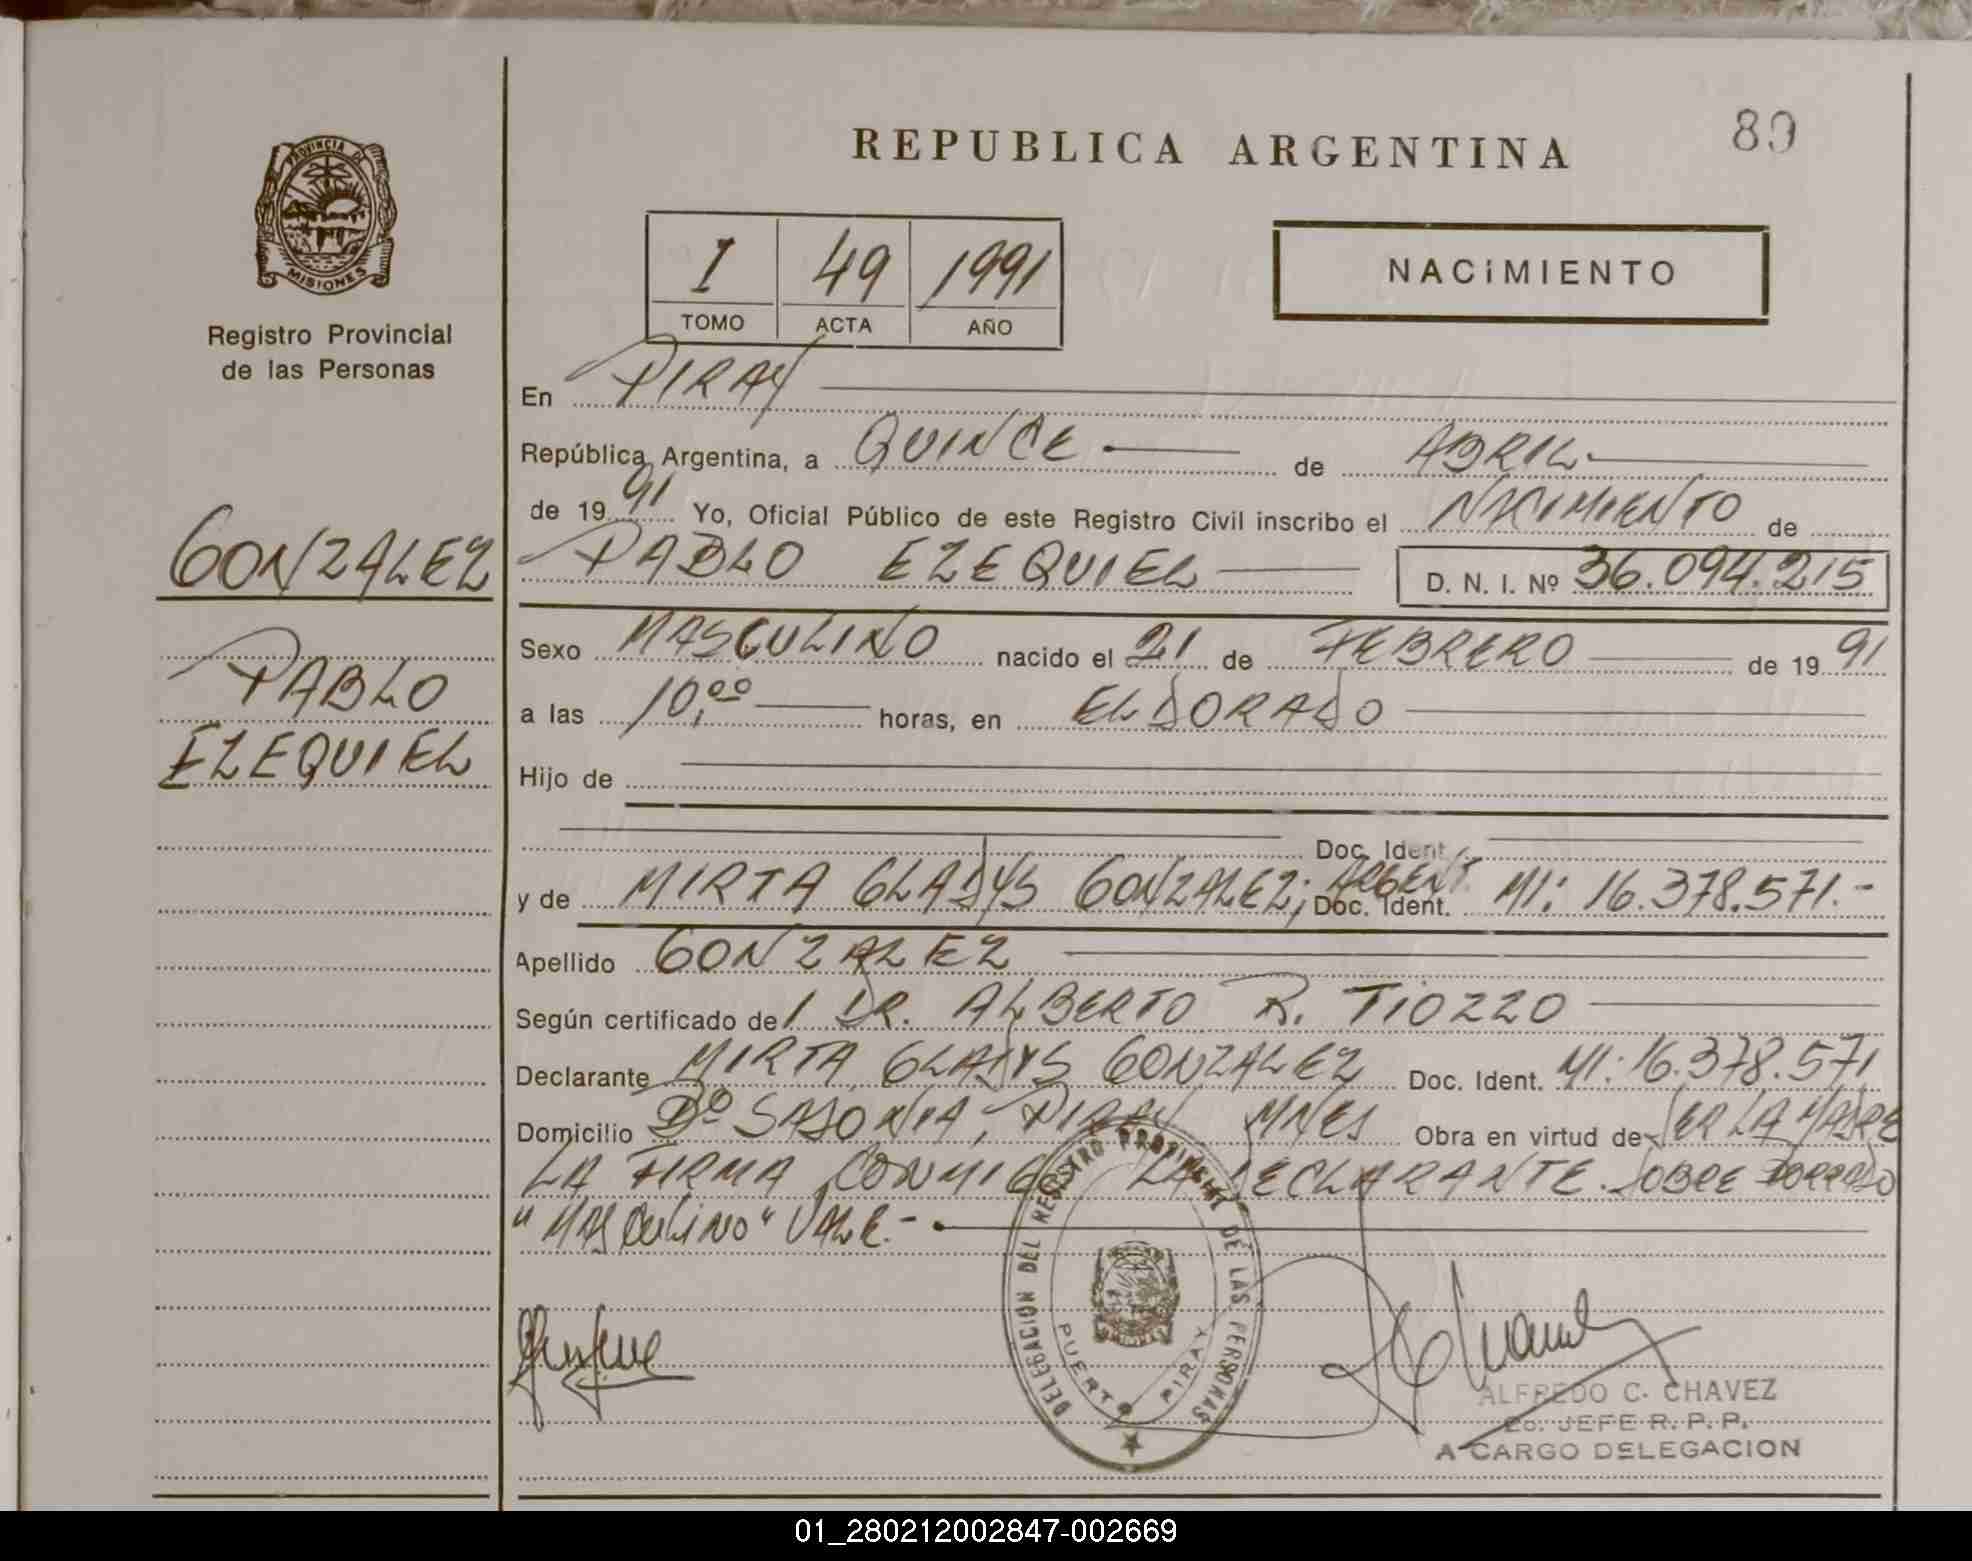 PROVINCIA DE
MISIONES
Registro Provincial
de las Personas
GONZALEZ
PABLO
EZEQUIEL
REPUBLICA ARGENTINA
89
I 49 1991
TOMO ACTA AÑO
NACIMIENTO
En PIRAY
República Argentina, a QUINCE de ABRIL
de 1991 Yo, Oficial Público de este Registro Civil inscribo el NACIMIENTO de
PABLO EZEQUIEL D. N. I. Nº 36.094.215
Sexo MASCULINO nacido el 21 de FEBRERO de 1991
a las 10,00 horas, en ELDORADO
Hijo de
Doc. Ident.
y de MIRTA GLADYS GONZALEZ; ARGENT. Doc. Ident. MI: 16.378.571.-
Apellido GONZALEZ
Según certificado de DR. ALBERTO R. TIOZZO
Declarante MIRTA GLADYS GONZALEZ Doc. Ident. MI: 16.378.571
Domicilio Bº SAJONIA, PIRAY MNES Obra en virtud de SER LA MADRE
LA FIRMA CONMIGO LA DECLARANTE. SOBRE BORRADO
"MASCULINO" VALE.-
DELEGACION DEL REGISTRO PROVINCIAL DE LAS PERSONAS
PUERTO PIRAY
ALFREDO C. CHAVEZ
2o. JEFE R. P. P.
A CARGO DELEGACION
01_280212002847-002669